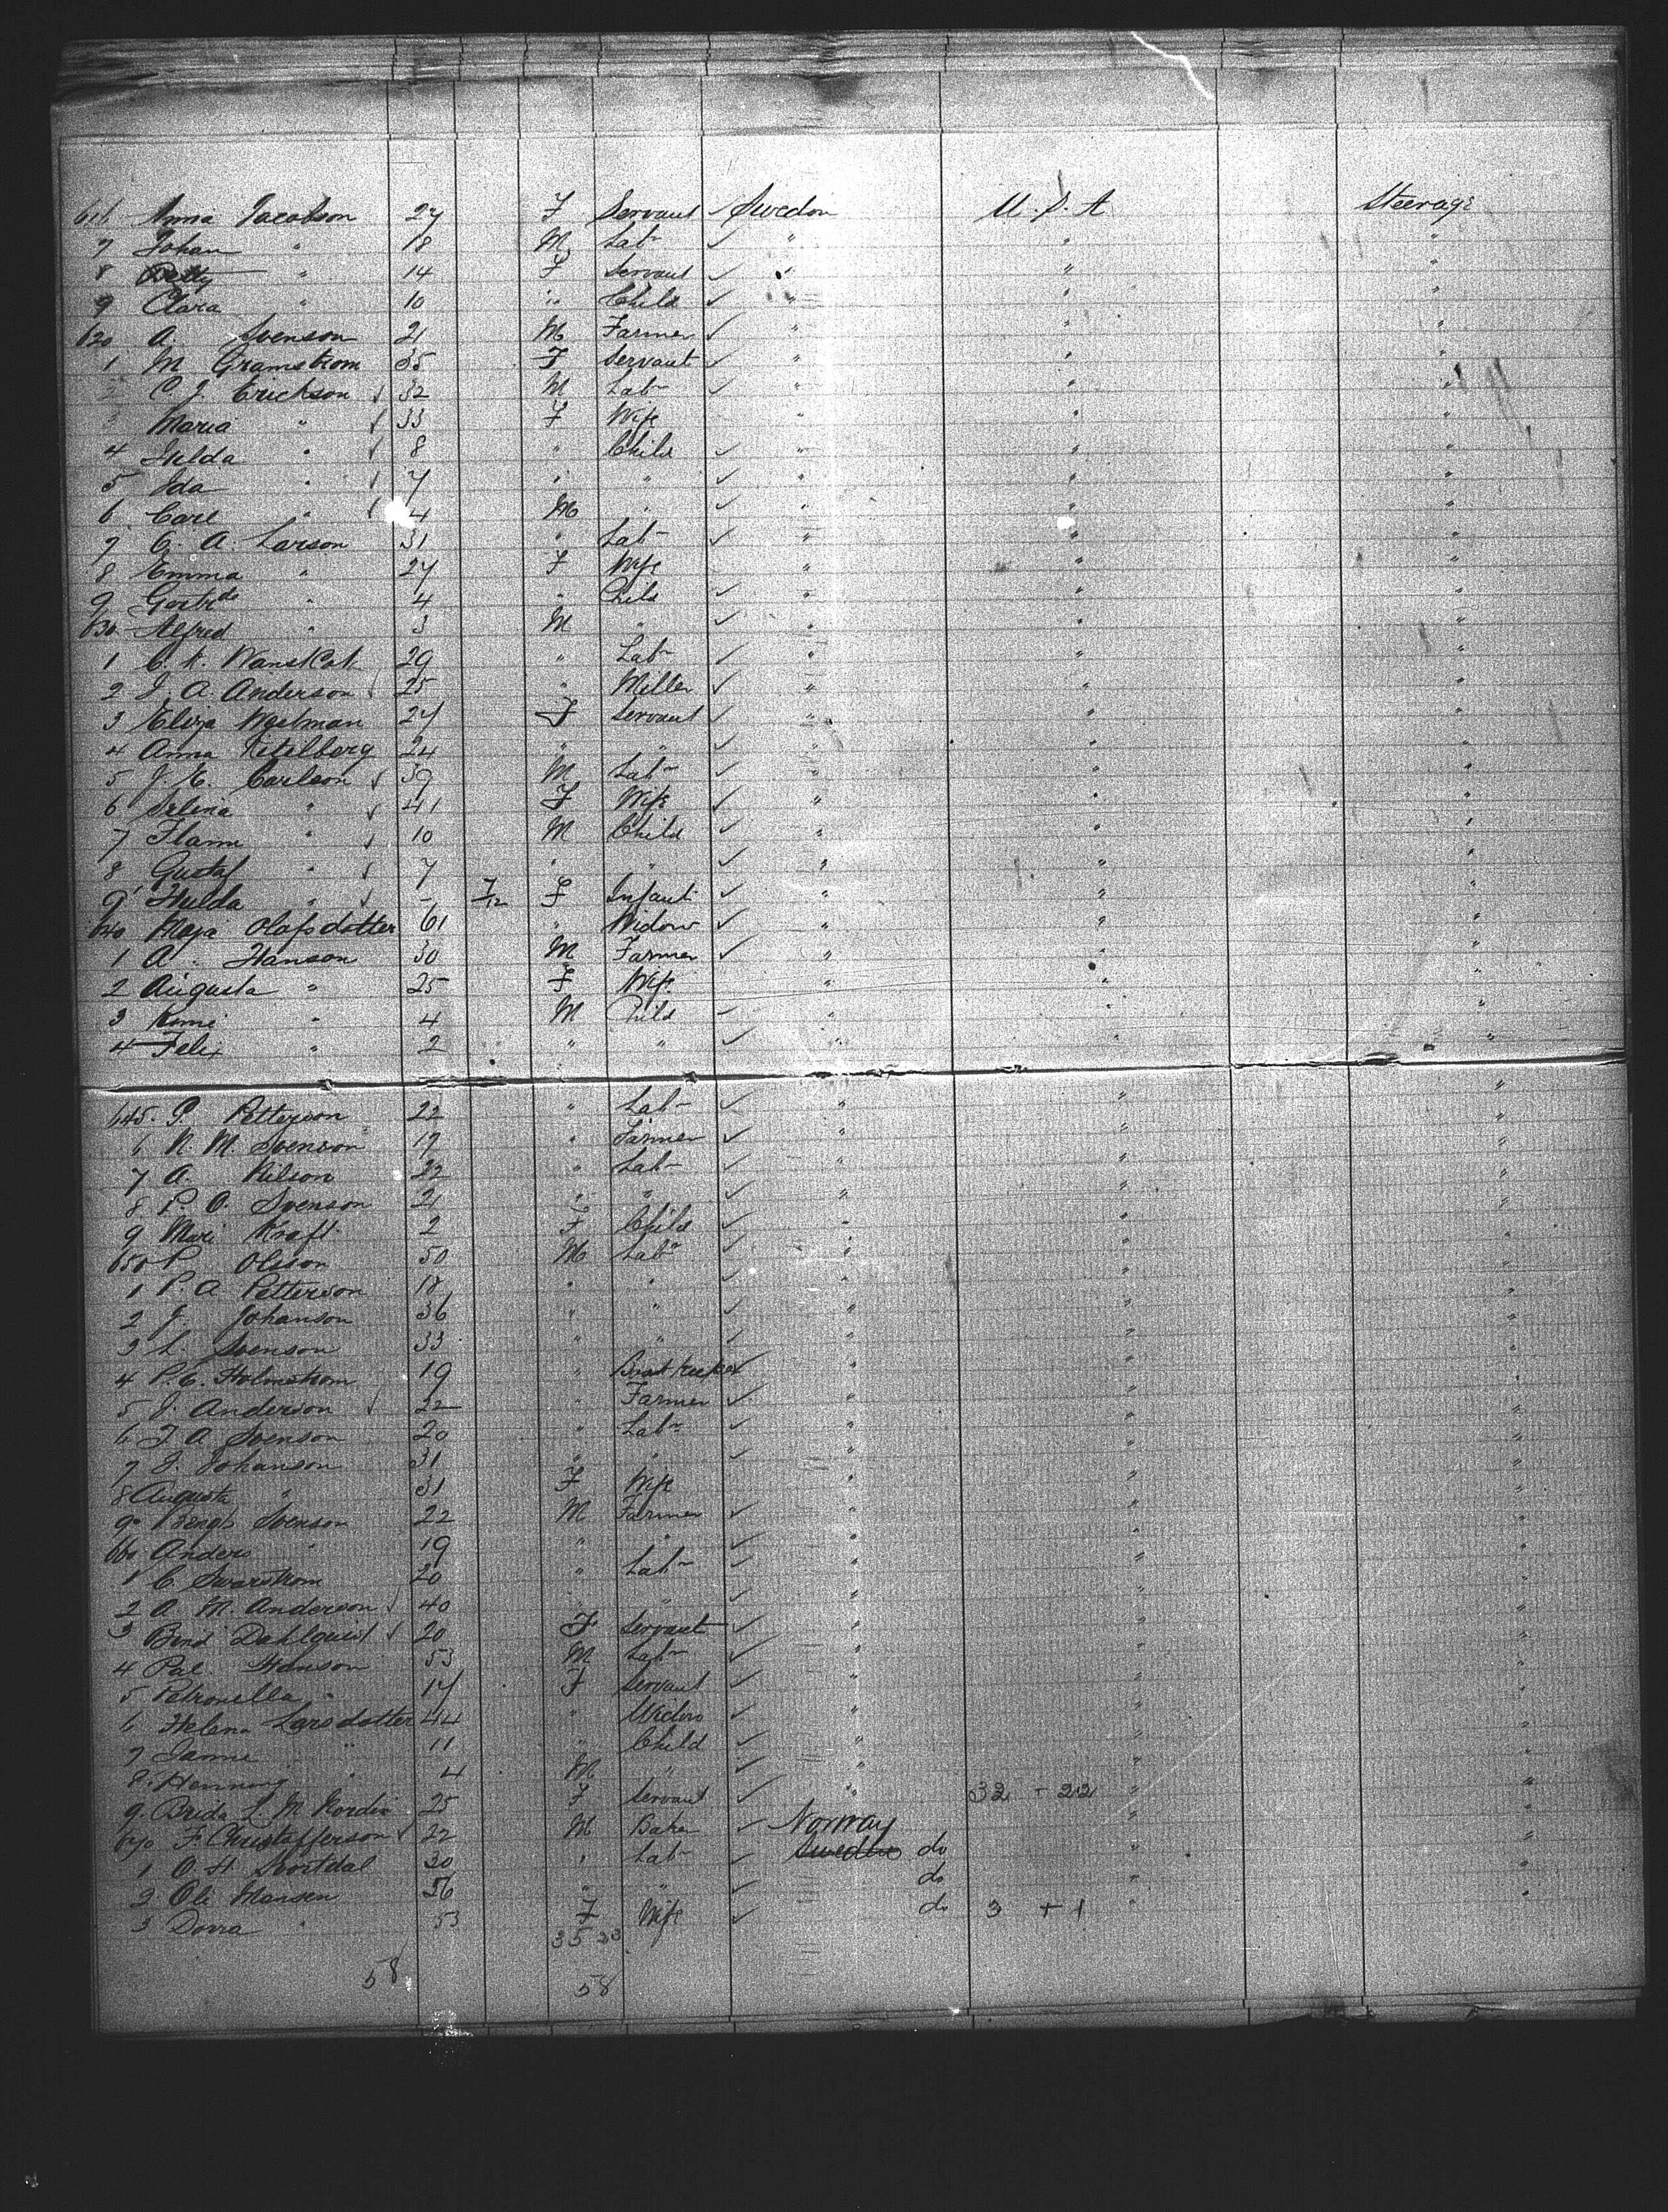 616 Anna Jacobson 27 F Servant ✓ Sweden U. S. A Steerage
7 Johan " 18 M Labr ✓ " " "
8 Betty " 14 F Servant ✓ " " "
9 Clara " 10 " Child ✓ " " "
620 A. Svenson 21 M Farmer ✓ " " "
1 M Gramstrom 35 F Servant ✓ " " "
2 C. J. Erickson ✓ 32 M Labr ✓ " " "
3 Maria " ✓ 33 F Wife " " "
4 Hilda " ✓ 8 " Child ✓ " " "
5 Ida " ✓ 7 " " ✓ " " "
6 Carl " ✓ 4 M " ✓ " " "
7 C. A. Larson 31 " Labr ✓ " " "
8 Emma " 27 F Wife " " "
9 " 4 " Child ✓ " " "
630 Alfred " 3 M " ✓ " " "
1 29 " Labr ✓ " " "
2 J. A. Anderson ✓ 25 " Miller ✓ " " "
3 Eliza Westman 27 F Servant ✓ " " "
4 Anna 24 " " ✓ " " "
5 J. E. Carlson ✓ 39 M Labr ✓ " " "
6 Selena " ✓ 41 F Wife ✓ " " "
7 " ✓ 10 M Child ✓ " " "
8 Gustaf " ✓ 7 " " ✓ " " "
9 Hulda " ✓ - 7/12 F Infant ✓ " " "
640 Maja Olofsdotter 61 " Widow ✓ " " "
1 A. Hanson 30 M Farmer ✓ " " "
2 Augusta " 25 F Wife " " "
3 " 4 M Child - " " "
4 Felix " 2 " " ✓ " " "
645. P. Petterson 22 " Labr ✓ " " "
6 N. M. Svenson 19 " Farmer ✓ " " "
7 A. Nilson 22 " Labr ✓ " " "
8 P. O. Svenson 21 " " ✓ " " "
9 Mari Kraft 2 F Child ✓ " " "
650 P. Olsson 50 M Labr ✓ " " "
1 P. A. Petterson 18 " " ✓ " " "
2 J. Johanson 36 " " ✓ " " "
3 L. Svenson 33 " " ✓ " " "
4 P. C. Holmstrom 19 " ✓ " " "
5 J. Anderson ✓ 22 " Farmer ✓ " " "
6 J. A. Svenson 20 " Labr ✓ " " "
7 J. Johanson 31 " " ✓ " " "
8 Augusta " 31 F Wife " " "
9 Bengt Svenson 22 M Farmer ✓ " " "
660 Anders " 19 " " ✓ " " "
1 C. 20 " Labr ✓ " " "
2 A. M. Anderson ✓ 40 " " ✓ " " "
3 Dahlquist ✓ 20 F Servant ✓ " " "
4 Hanson 53 M Labr ✓ " " "
5 Petronella " 17 F Servant ✓ " " "
6 Helena Larsdotter 44 " Widow ✓ " " "
7 " 11 " Child ✓ " " "
8. Henning " 4 M " ✓ " " "
9. L. M. Nordin 25 F Servant ✓ " 32 + 22 " "
670 F. Christofferson ✓ 22 M Baker ✓ Norway " "
1 O. H. 30 " Labr ✓ Sweden do " "
2 Ole Hansen 56 " " ✓ do " "
3 Dorra " 53 F Wife ✓ do 3 + 1 " "
35 23
58 58